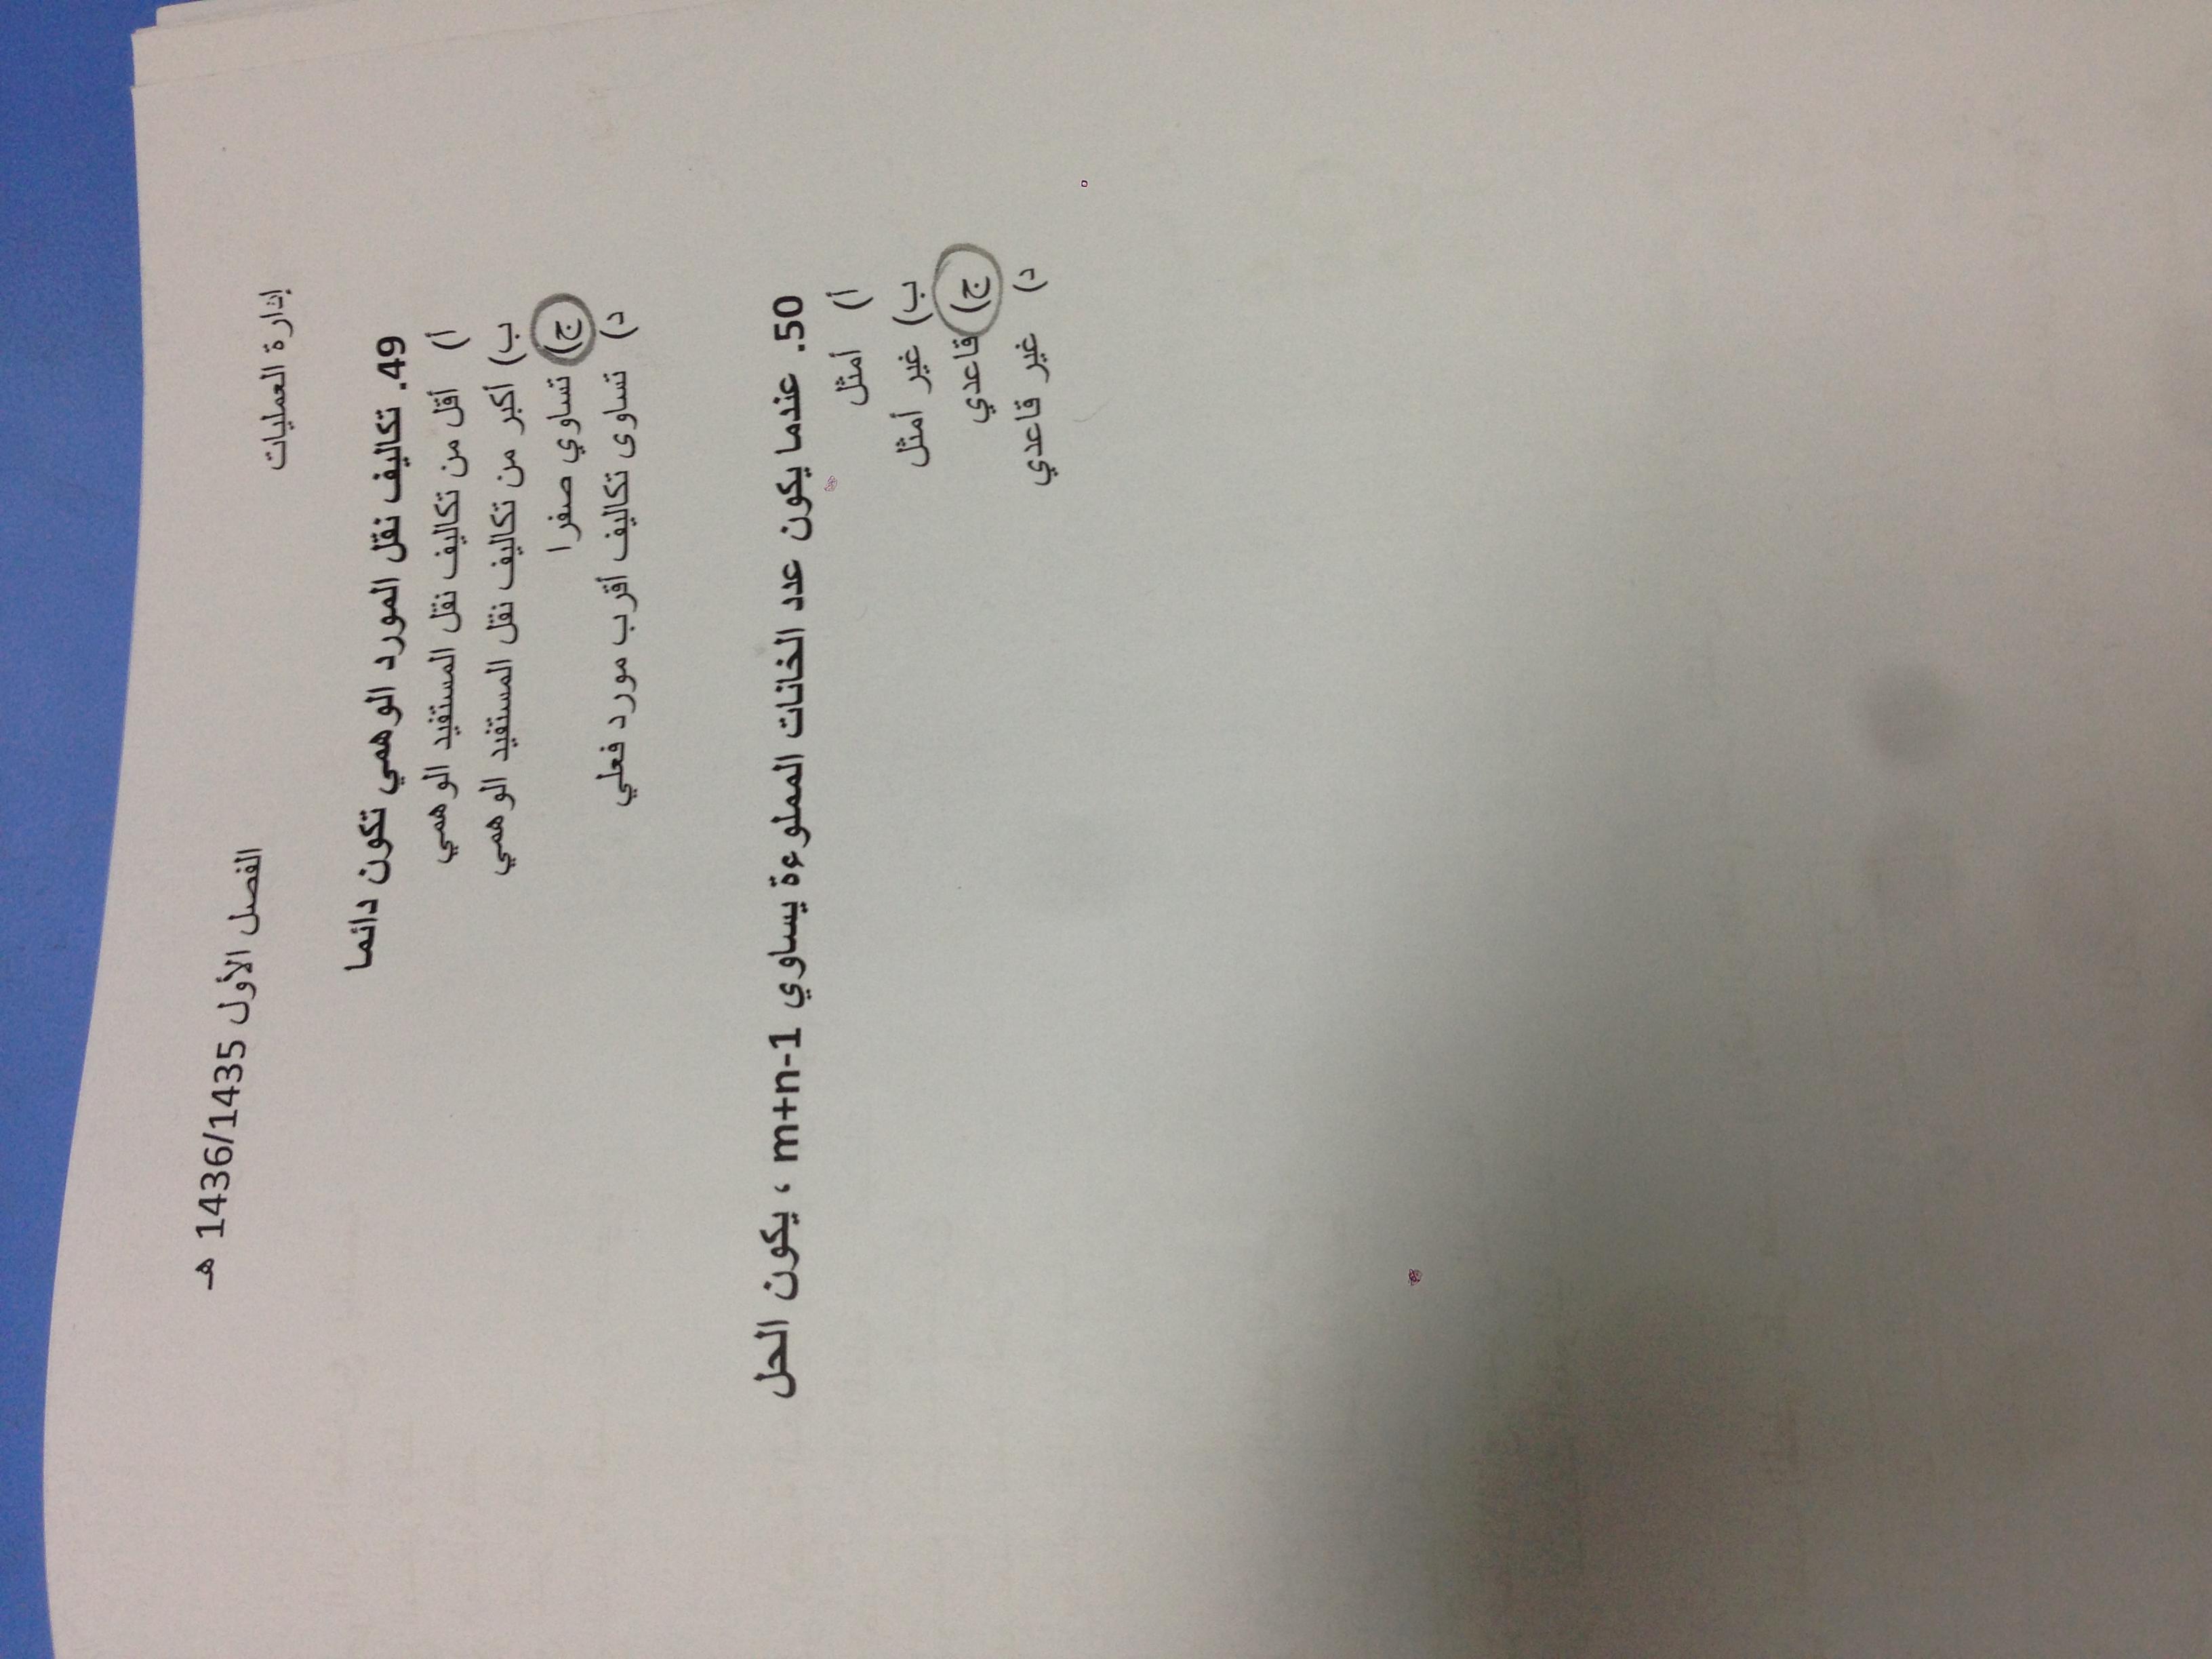 إدارة العمليات
الفصل الأول 1436/1435 هـ
49. تكاليف نقل المورد الوهمي تكون دائما
أ) أقل من تكاليف نقل المستفيد الوهمي
ب) أكبر من تكاليف نقل المستفيد الوهمي
ج) تساوي صفرا
د) تساوى تكاليف أقرب مورد فعلي
50. عندما يكون عدد الخانات المملوءة يساوي m+n-1 ، يكون الحل
أ) أمثل
ب) غير أمثل
ج) قاعدي
د) غير قاعدي